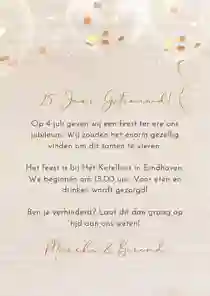 25 Jaar Getrouwd!
Op 4 juli geven wij een feest ter ere ons
jubileum. Wij zouden het enorm gezellig
vinden om dit samen te vieren.
Het feest is bij Het Ketelhuis in Eindhoven.
We beginnen om 15.00 uur. Voor eten en
drinken wordt gezorgd!
Ben je verhinderd? Laat dit dan graag op
tijd aan ons weten!
&